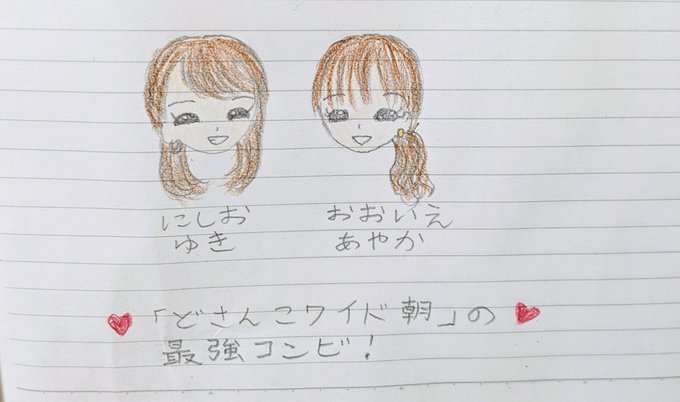 にしお
ゆき
おおいえ
あやか
「どさんこワイド朝」の
最強コンビ!